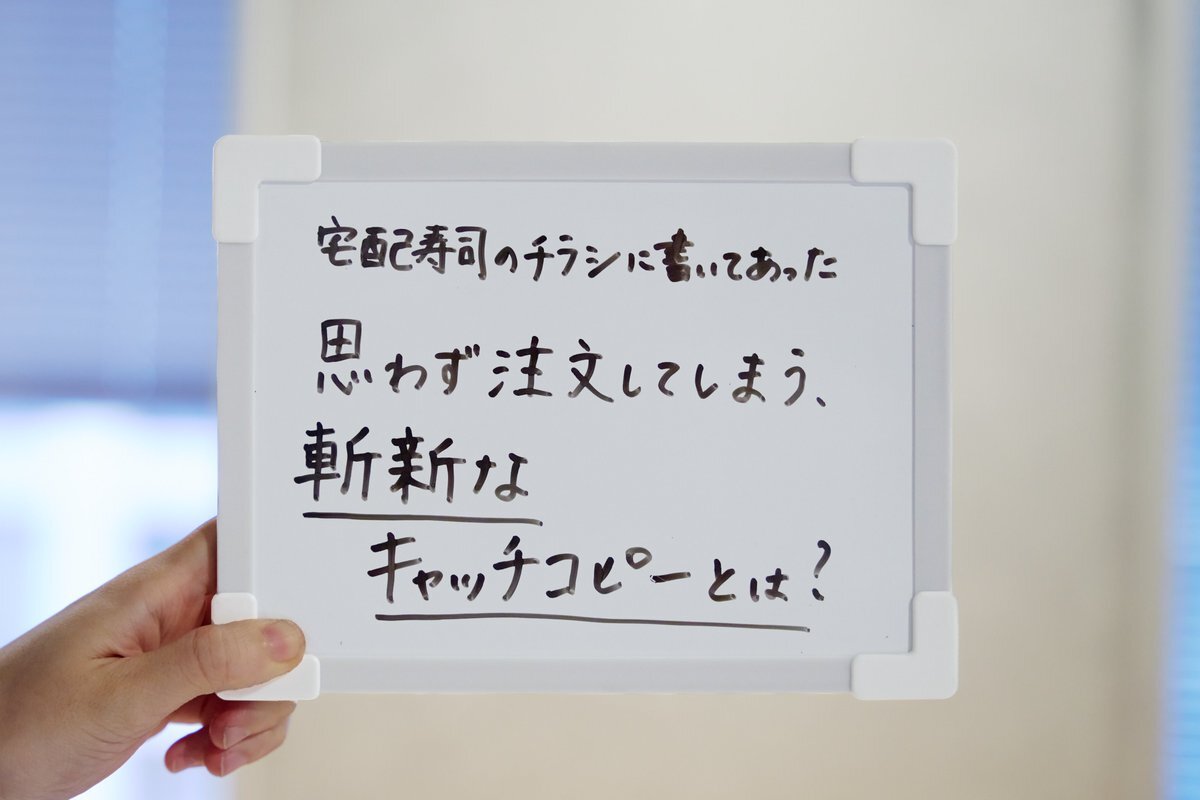 宅配寿司のチラシに書いてあった
思わず注文してしまう、
斬新な
キャッチコピーとは?